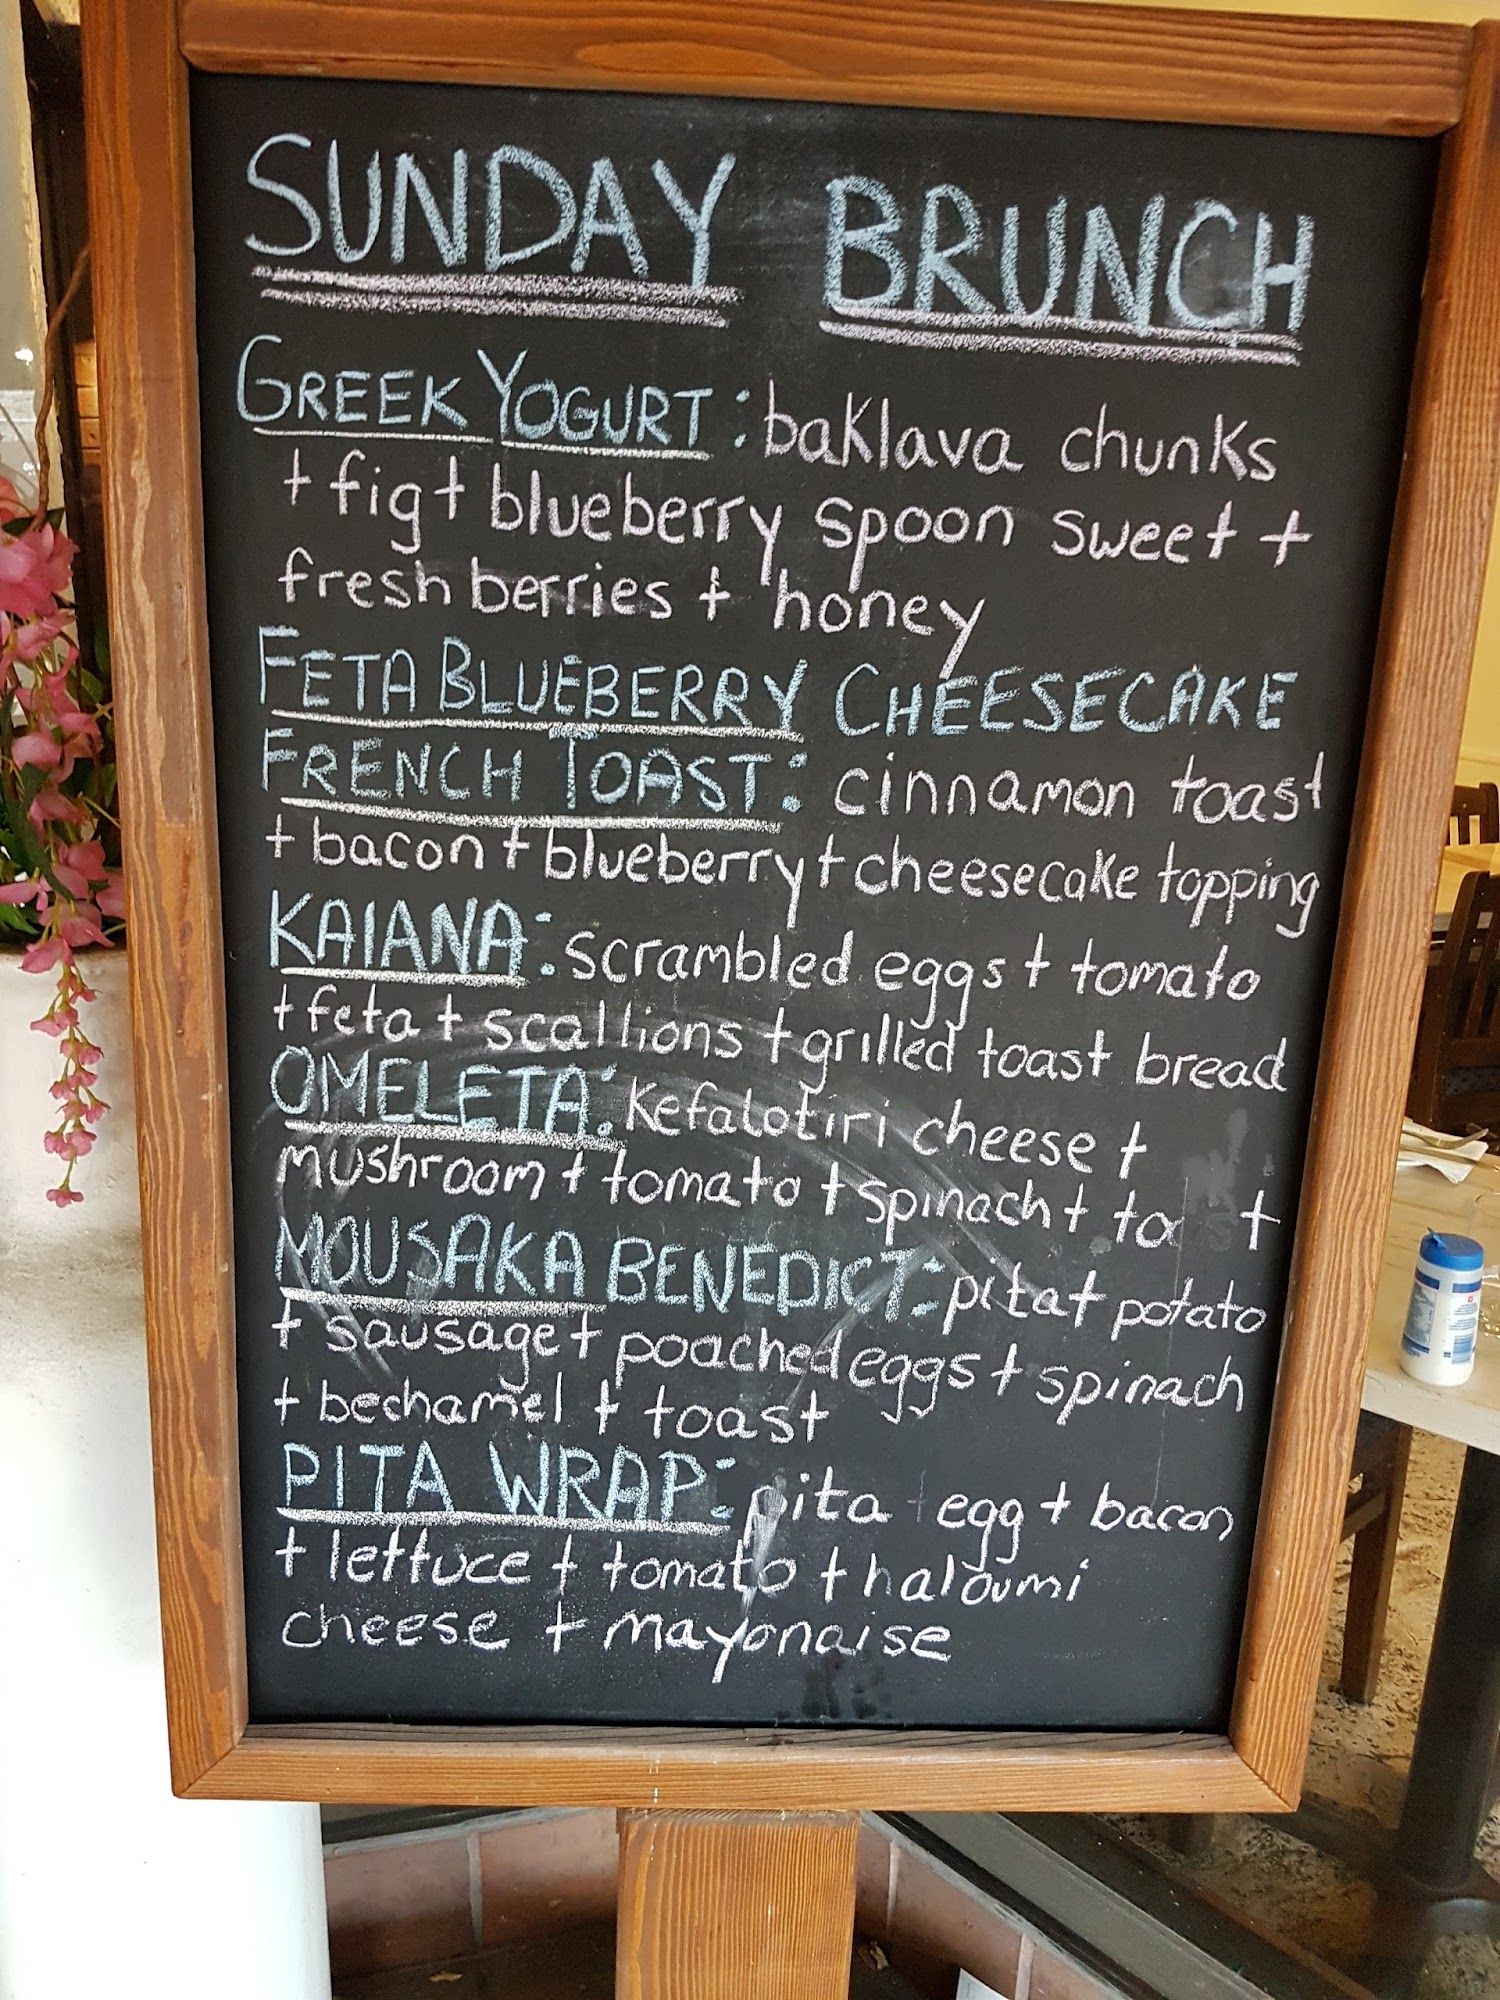 SUNDAY BRUNCH
GREEK YOGURT: baklava chunks
+ fig + blueberry spoon sweet +
fresh berries + honey
FETA BLUEBERRY CHEESECAKE
FRENCH TOAST: cinnamon toast
+ bacon + blueberry + cheesecake topping
KAIANA: scrambled eggs + tomato
+ feta + scallions + grilled toast bread
OMELETA: Kefalotiri cheese +
mushroom + tomato + spinach +
MOUSAKA BENEDICT: pita + potato
+ sausage + poached eggs + spinach
+ bechamel + toast
PITA WRAP: pita egg + bacon
+ lettuce + tomato + haloumi
cheese + mayonaise